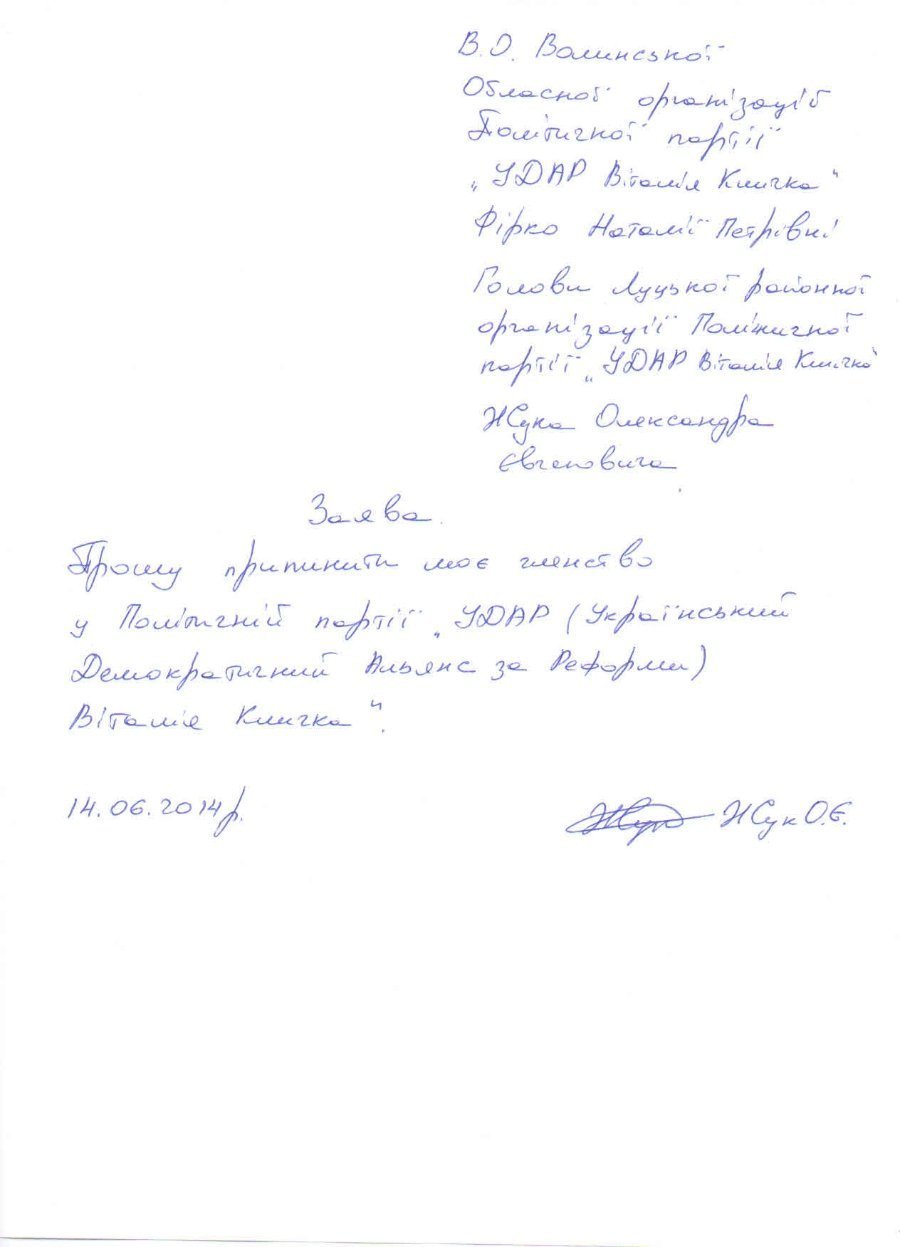 В.О. Волинської
Обласної організації
Політичної партії
„УДАР Віталія Кличка"
Фірко Наталії Петрівні
Голови Луцької районної
організації Політичної
партії „УДАР Віталія Кличка"
Жука Олександра
Євгеновича
Заява.
Прошу припинити моє членство
у Політичній партії „УДАР (Український
Демократичний Альянс за Реформи)
Віталія Кличка".
14.06.2014р. Жук Жук О.Є.